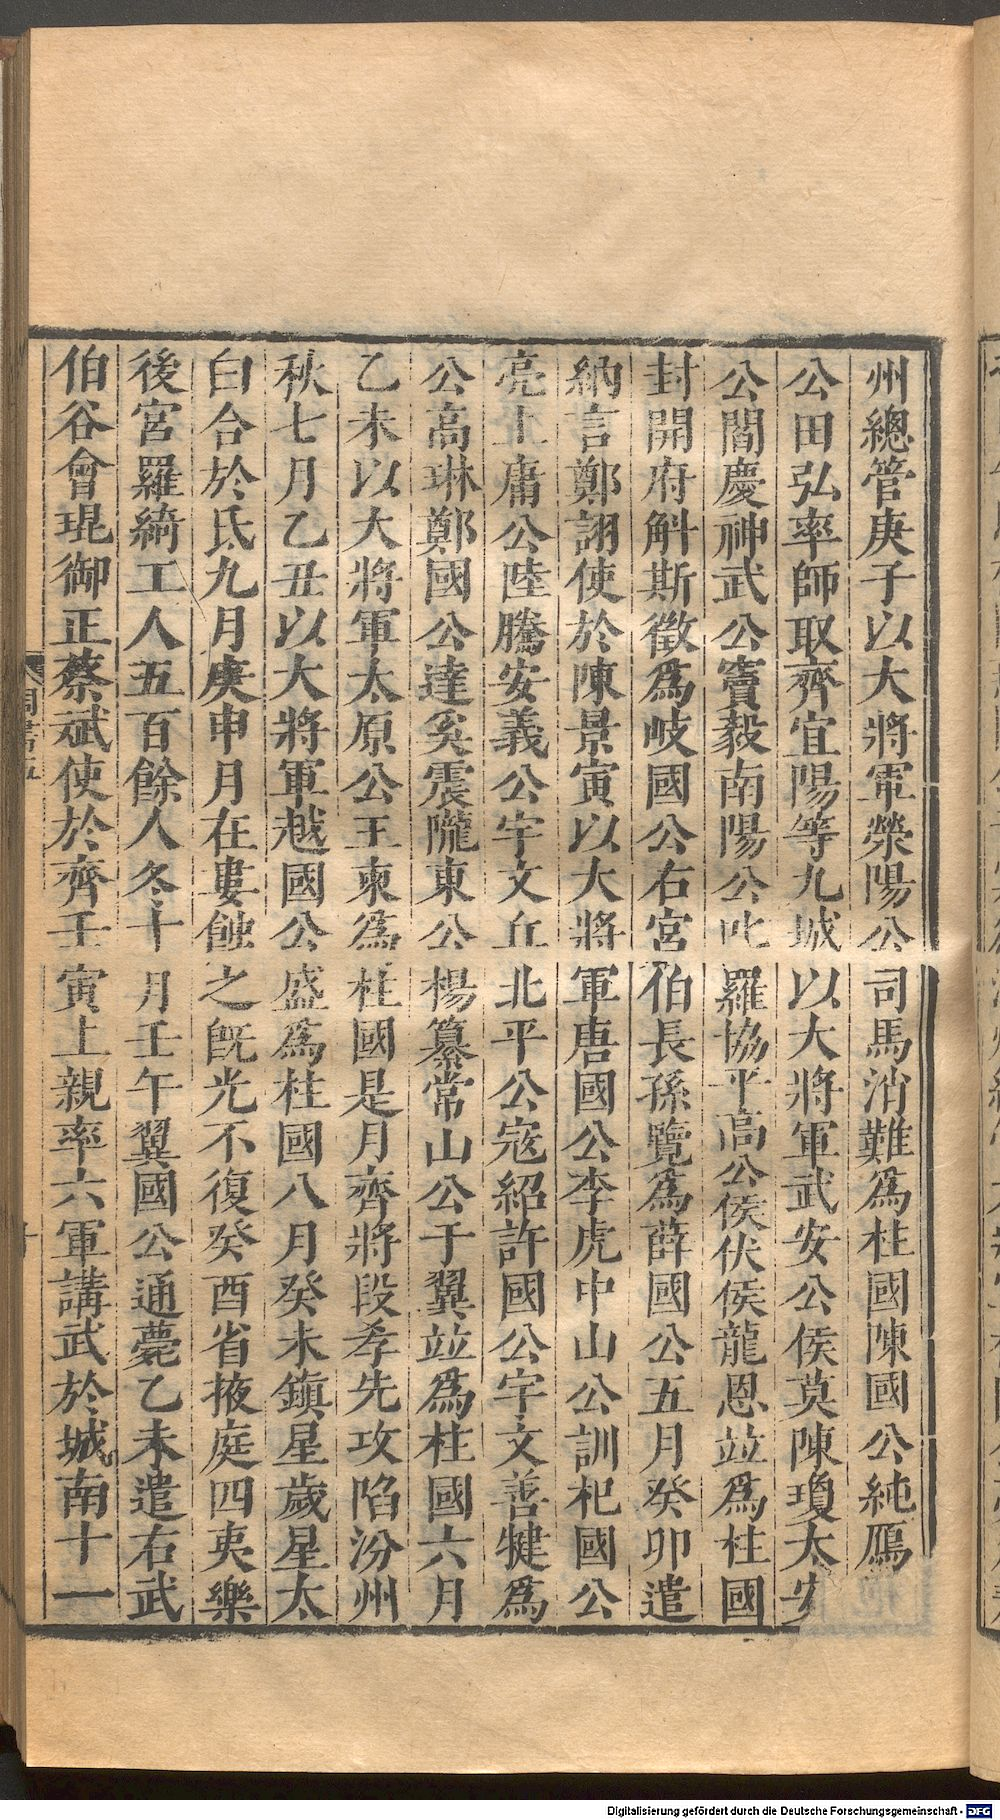 州總管庚子以大將軍滎陽公司馬消難爲柱國陳國公純鴈
公田弘率師取齊宜陽等九城以大將軍武安公侯莫陳瓊太安
公閻慶神武公竇毅南陽公叱羅協平高公侯伏侯龍恩竝爲柱國
封開府斛斯徵爲岐國公右宮伯長孫覽爲薛國公五月癸卯遣
納言鄭詡使於陳景寅以大將軍唐國公李虎中山公訓杞國公
亮上庸公陸騰安義公宇文丘北平公寇紹許國公宇文善犍爲
公高琳鄭國公達奚震隴東公楊纂常山公于翼竝爲柱國六月
乙未以大將軍太原公王柬爲柱國是月齊將段孝先攻陷汾州
秋七月乙丑以大將軍越國公盛爲柱國八月癸未鎮星歲星太
白合於氐九月庚申月在婁蝕之旣光不復癸酉省掖庭四夷樂
後宮羅綺工人五百餘人冬十月壬午翼國公通薨乙未遣右武
伯谷會琨御正蔡斌使於齊壬寅上親率六軍講武於城南十一
周書五
Digitalisierung gefördert durch die Deutsche Forschungsgemeinschaft - DFG